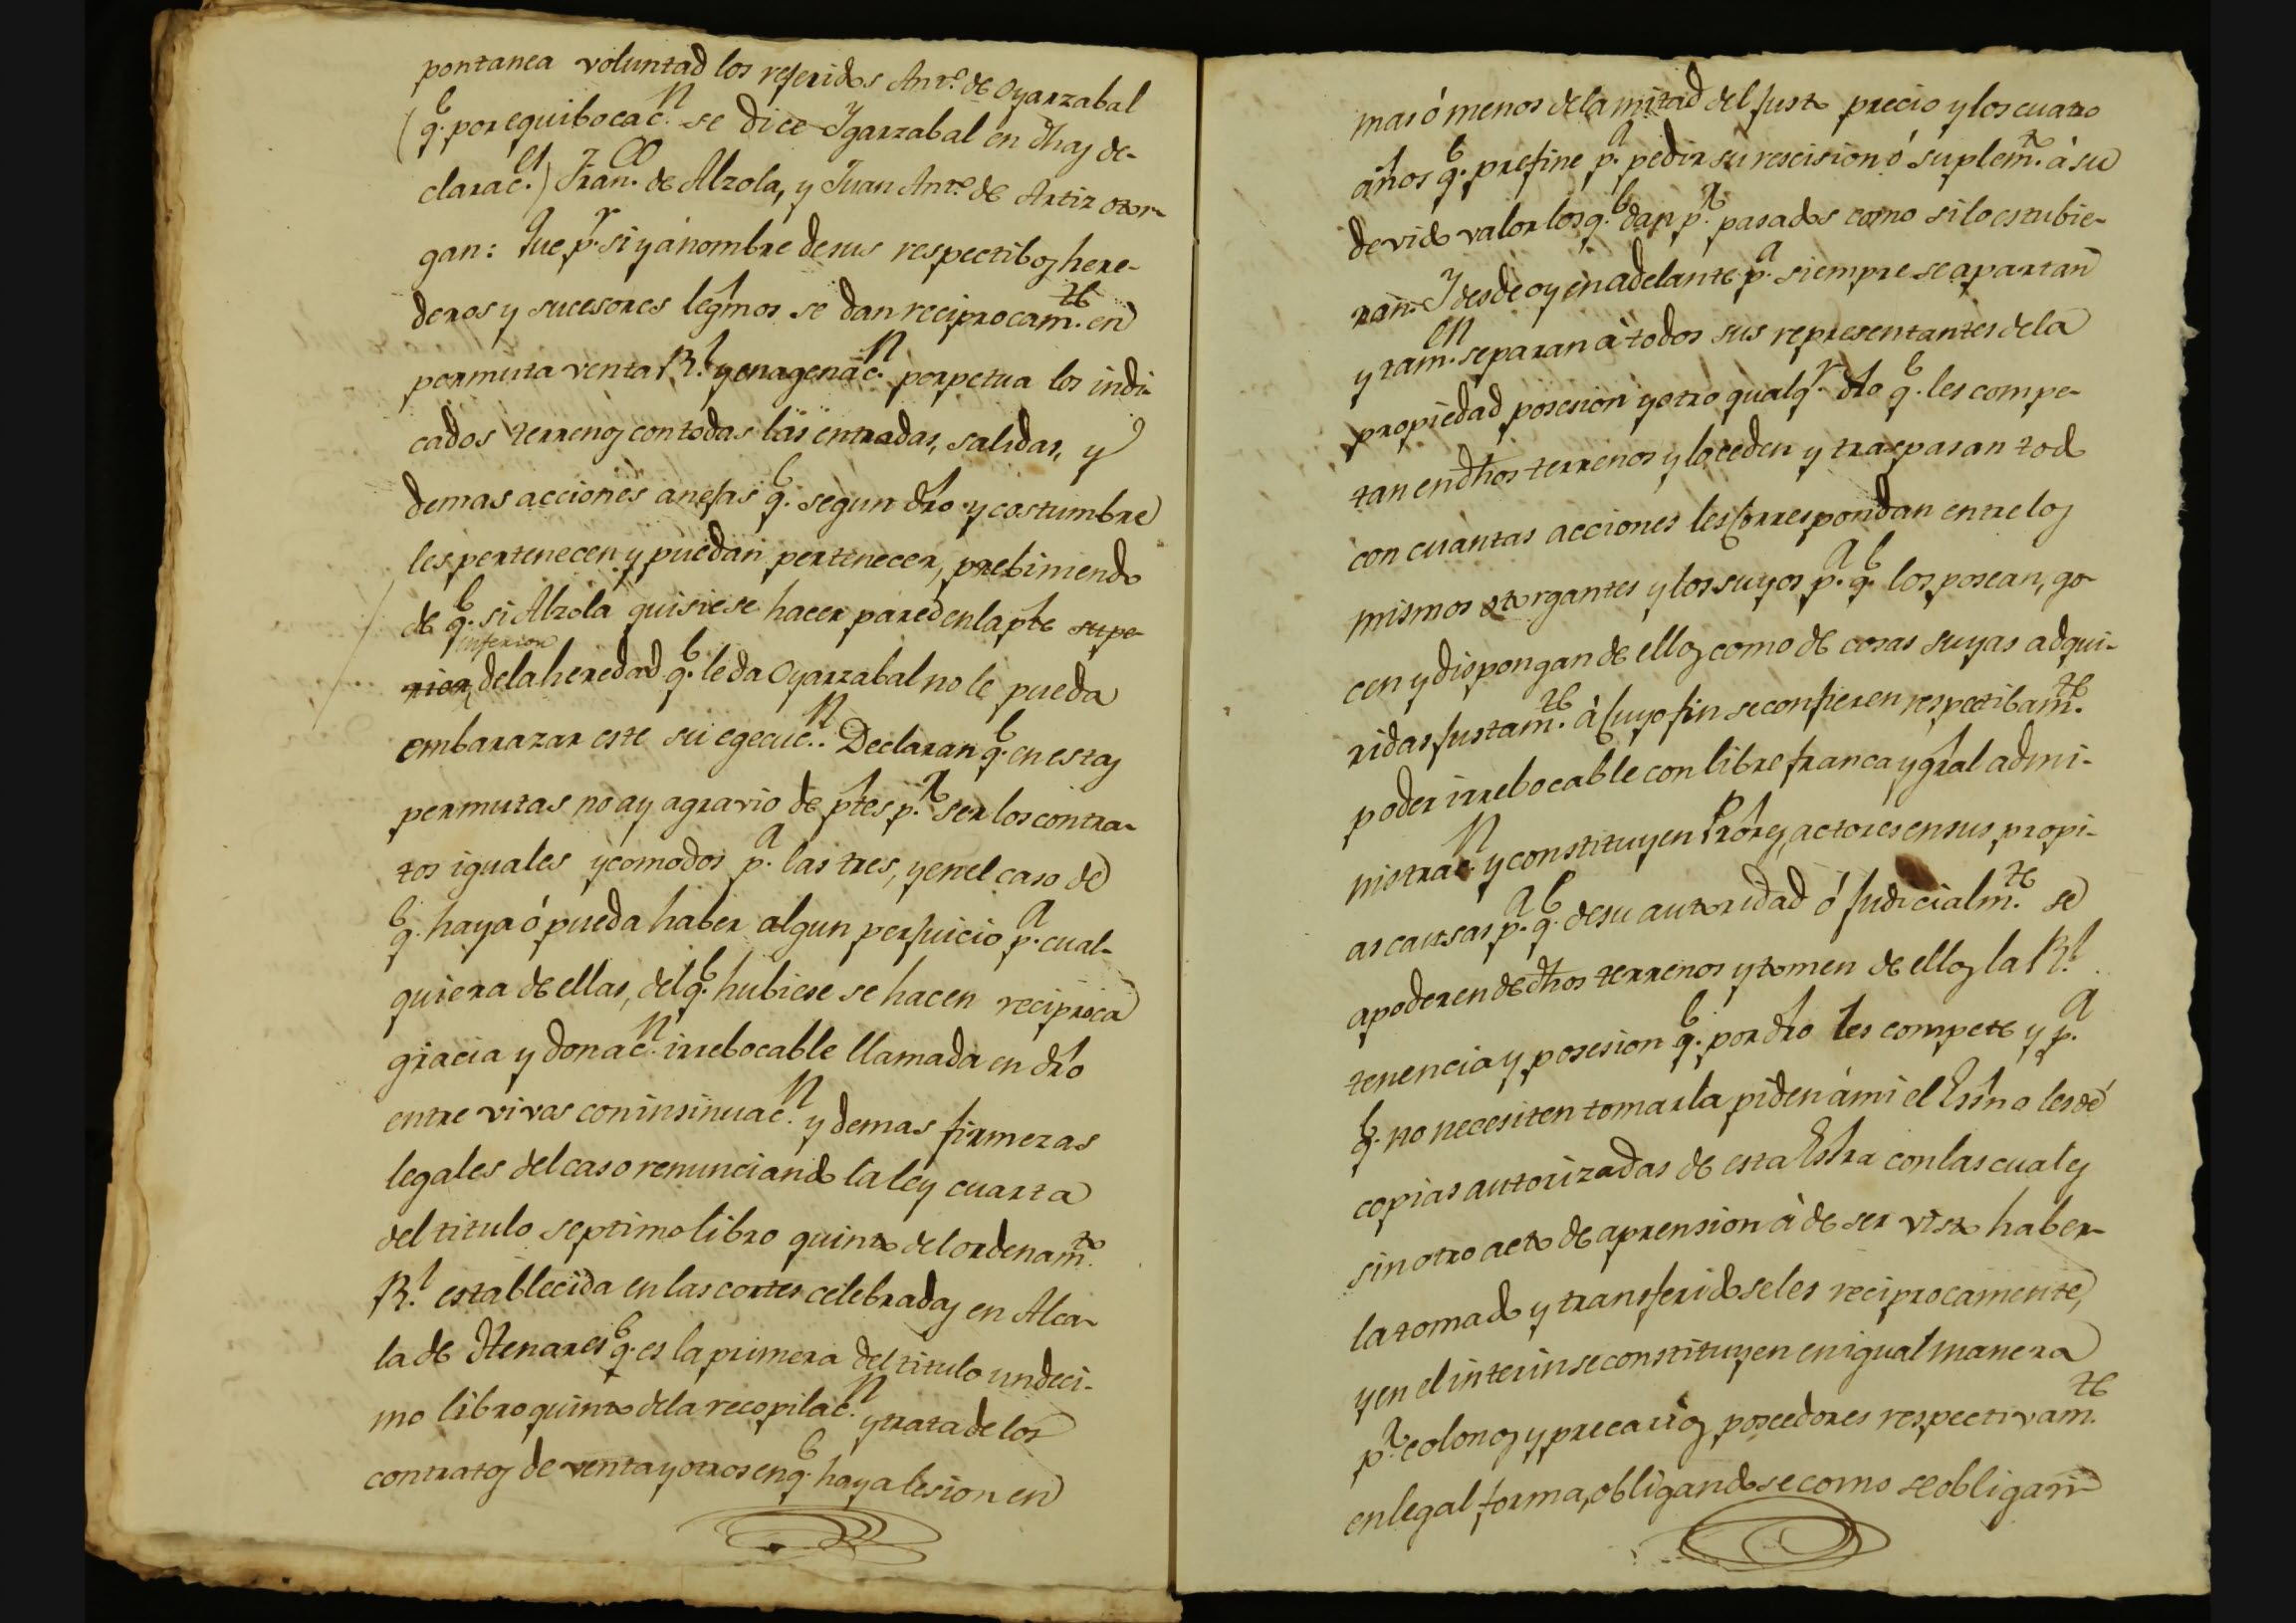 pontanea voluntad los referidos Ant.º de Oyarzabal
(q.e por equibocac.n se dice Ygarzabal en dhas de-
clarac.es) Fran.co de Alzola, y Juan Ant.º de Artiz otor-
gan: Que p.r si y á nombre de sus respectibos here-
deros y sucesores legmos se dan reciprocam.te en
permuta venta R.l y enagenac.n perpetua los indi-
cados terrenos con todas las entradas, salidas, y
demas acciones anejas q.e segun dro y costumbre
les pertenecen y puedan pertenecer, prebiniendo
de q.e si Alzola quisiese hacer pared en la pte supe-
inferior
rior, de la heredad q.e le da Oyarzabal no le pueda
embarazar este su egecuc.n. Declaran q.e en estas
permutas no ay agravio de ptes p.r ser los contra-
tos iguales y comodos p.a las tres, y en el caso de
q.e haya ó pueda haber algun perjuicio p.a cual-
quiera de ellas, del q.e hubiese se hacen reciproca
gracia y donac.n irrebocable llamada en dro
entre vivos con insinuac.n y demas firmezas
legales del caso renunciando la ley cuarta
del titulo septimo libro quinto del ordenam.to
R.l establecida en las cortes celebradas en Alca-
la de Henares q.e es la primera del titulo undeci-
mo libro quinto de la recopilac.n y trata de los
contratos de venta y otros en q.e haya lesion en
mas ó menos de la mitad del justo precio y los cuatro
años q.e prefine p.a pedir su rescision ó suplem.to á su
devido valor los q.e dan p.r pasados como si lo estubie-
ran. Y desde oy en adelante p.a siempre se apartan
y ram.en separan à todos sus representantes de la
propiedad posesion y otro qualq.r dro q.e les compe-
tan en dhos terrenos y lo ceden y traspasan todo
con cuantas acciones les correspondan entre los
mismos otorgantes y los suyos p.a q.e los posean, go-
cen y dispongan de ellos como de cosas suyas adqui-
ridas justam.te à cuyo fin se confieren respectibam.te
poder irrebocable con libre franca y gral admi-
nistrac.n y constituyen Prores, actores en sus propi-
as causas p.a q.e de su autoridad ó judicialm.te se
apoderen de dhos terrenos y tomen de ellos la R.l
tenencia y posesion q.e por dro les compete y p.a
q.e no necesiten tomarla piden á mi el Essno les dé
copias autorizadas de esta Essra con las cuales
sin otro acto de aprension à de ser visto haber-
la tomado y transferidoseles reciprocamente,
y en el interin se constituyen en igual manera
p.r colonos y precarios poseedores respectivam.te
en legal forma, obligandose como se obligan